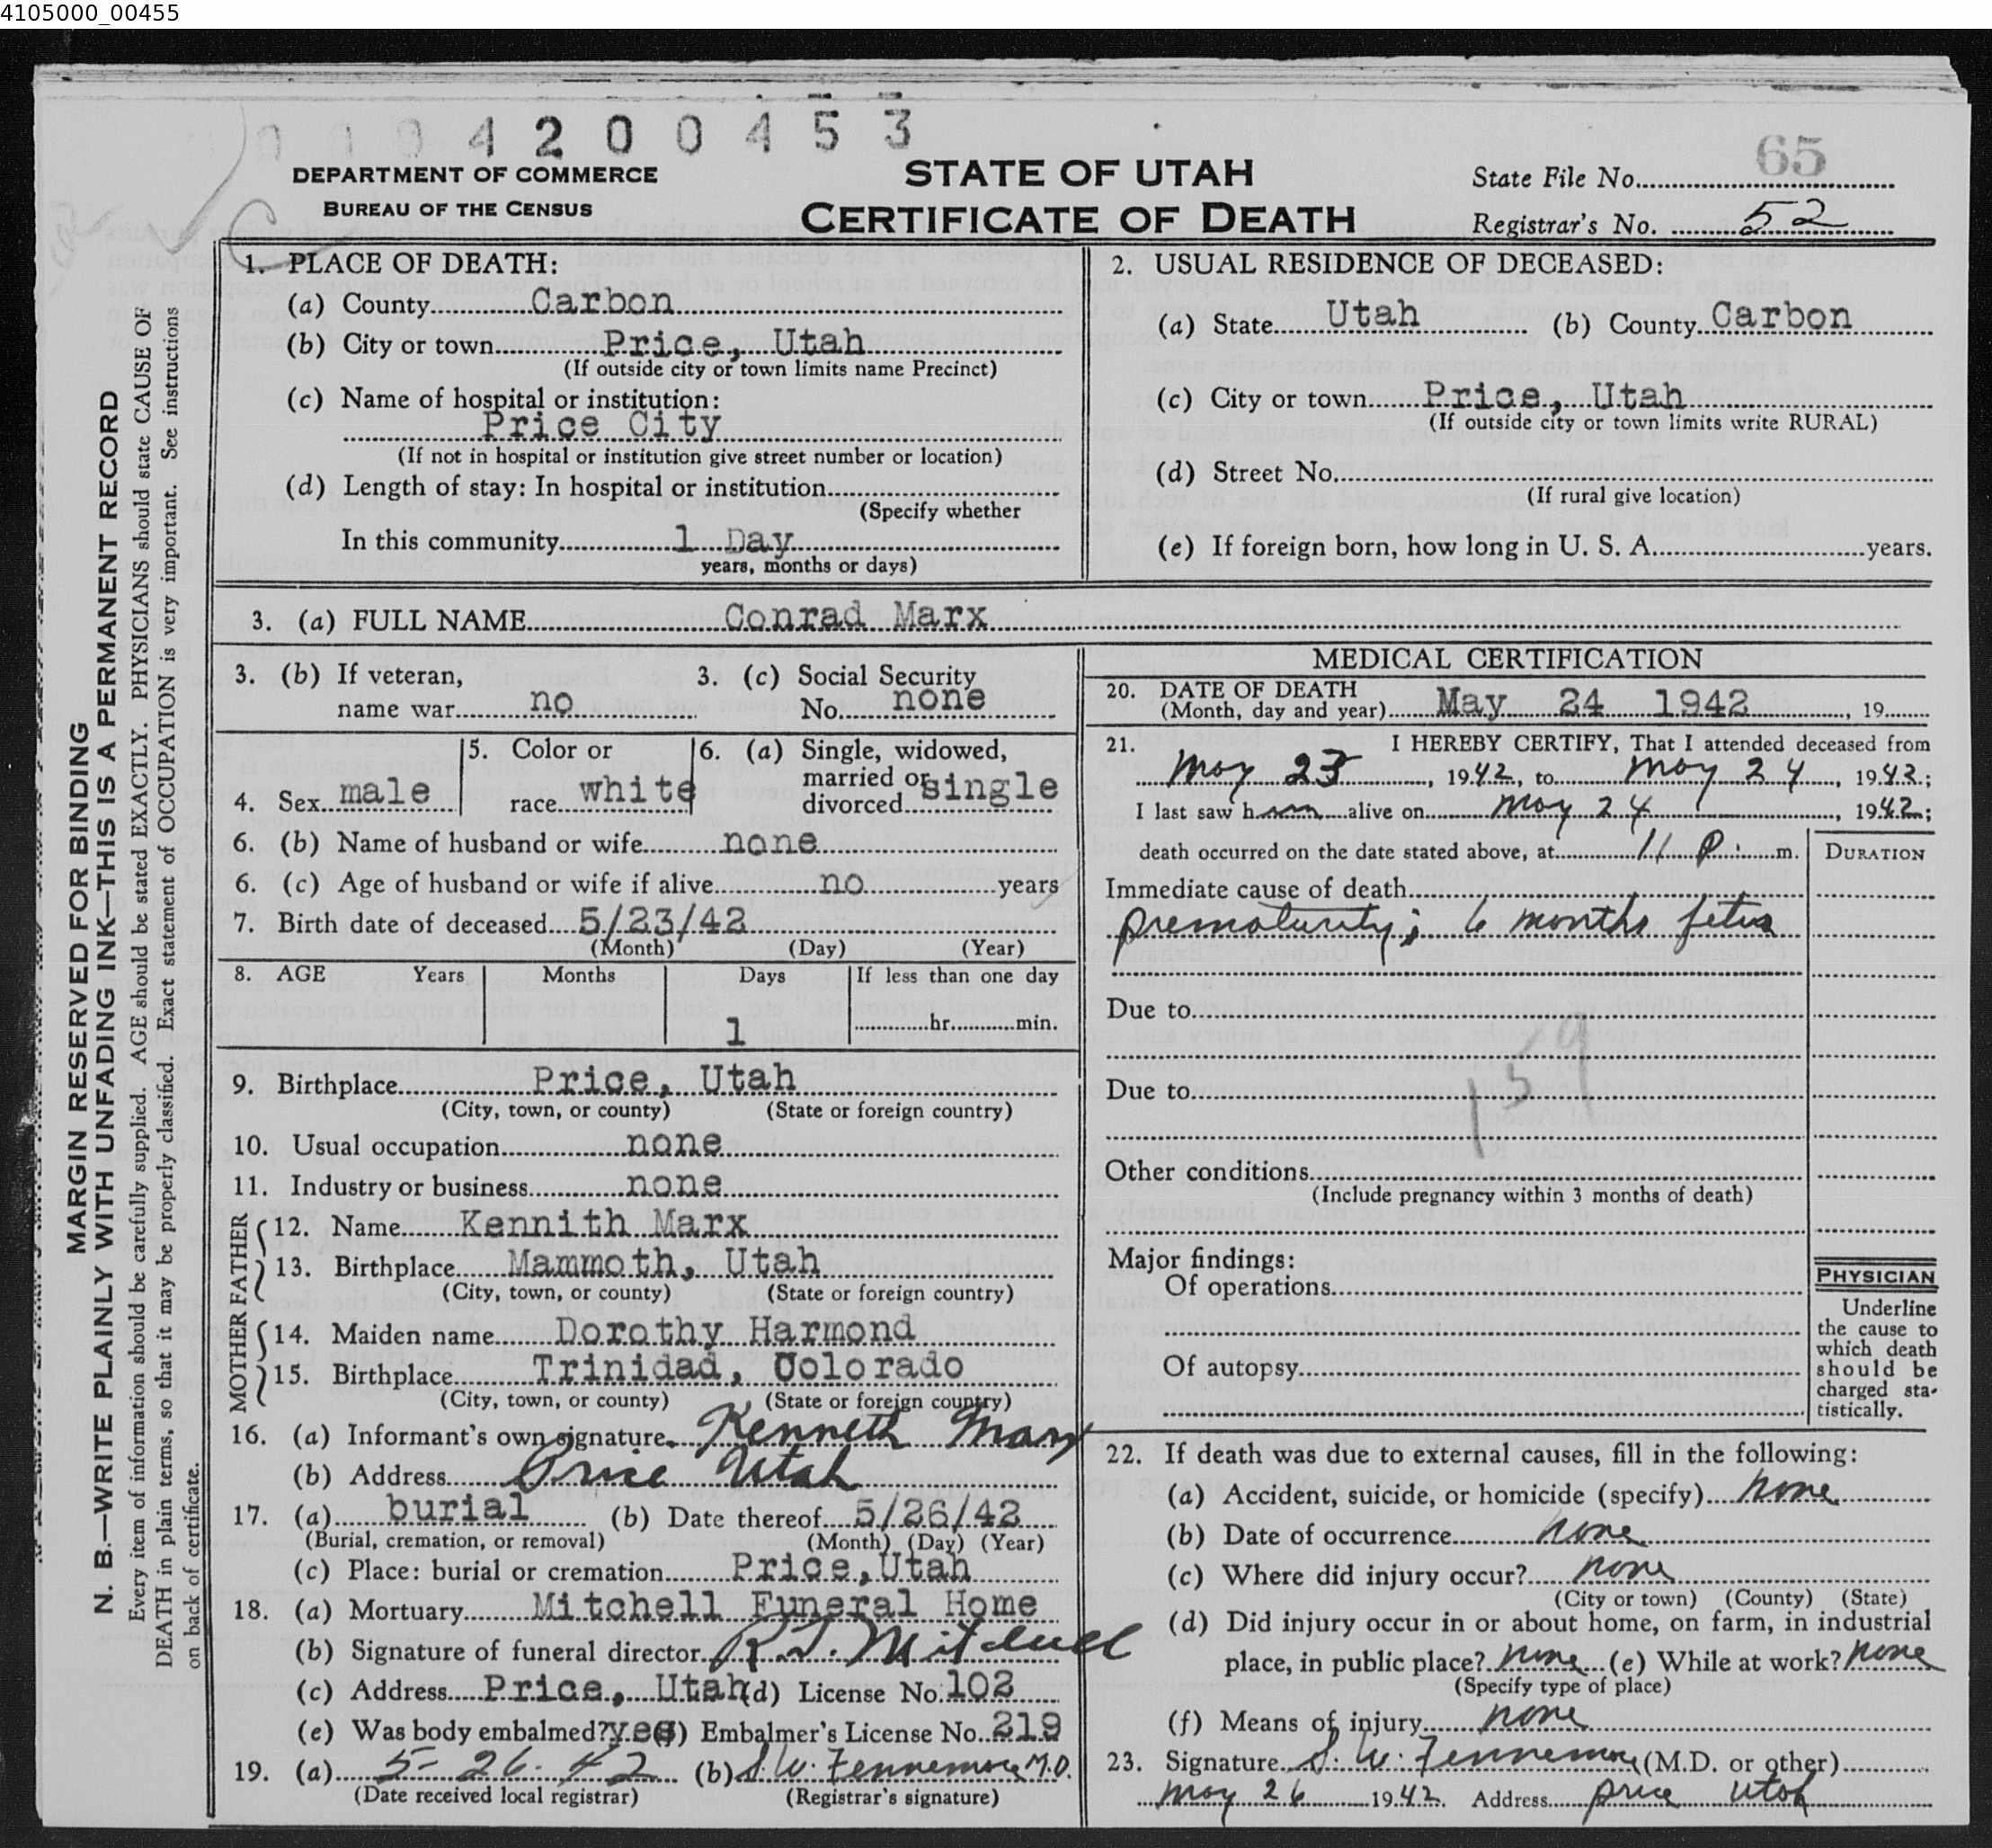 4105000_00455
0 0 0 4 2 0 0 4 5 3
65
DEPARTMENT OF COMMERCE
BUREAU OF THE CENSUS
STATE OF UTAH
CERTIFICATE OF DEATH
State File No.
Registrar's No. 52
MARGIN RESERVED FOR BINDING
N. B.—WRITE PLAINLY WITH UNFADING INK—THIS IS A PERMANENT RECORD
Every item of information should be carefully supplied. AGE should be stated EXACTLY. PHYSICIANS should state CAUSE OF
DEATH in plain terms, so that it may be properly classified. Exact statement of OCCUPATION is very important. See instructions
on back of certificate.
1. PLACE OF DEATH:
(a) County Carbon
(b) City or town Price, Utah
(If outside city or town limits name Precinct)
(c) Name of hospital or institution:
Price City
(If not in hospital or institution give street number or location)
(d) Length of stay: In hospital or institution
(Specify whether
In this community 1 Day
years, months or days)
2. USUAL RESIDENCE OF DECEASED:
(a) State Utah (b) County Carbon
(c) City or town Price, Utah
(If outside city or town limits write RURAL)
(d) Street No.
(If rural give location)
(e) If foreign born, how long in U. S. A. years.
3. (a) FULL NAME Conrad Marx
3. (b) If veteran,
name war no
3. (c) Social Security
No. none
4. Sex male
5. Color or
race white
6. (a) Single, widowed,
married or
divorced single
6. (b) Name of husband or wife none
6. (c) Age of husband or wife if alive no years
7. Birth date of deceased 5/23/42
(Month) (Day) (Year)
8. AGE Years Months Days If less than one day
1 hr. min.
9. Birthplace Price, Utah
(City, town, or county) (State or foreign country)
10. Usual occupation none
11. Industry or business none
FATHER
12. Name Kennith Marx
13. Birthplace Mammoth, Utah
(City, town, or county) (State or foreign country)
MOTHER
14. Maiden name Dorothy Harmond
15. Birthplace Trinidad, Colorado
(City, town, or county) (State or foreign country)
16. (a) Informant's own signature Kenneth Marx
(b) Address Price Utah
17. (a) burial (b) Date thereof 5/26/42
(Burial, cremation, or removal) (Month) (Day) (Year)
(c) Place: burial or cremation Price, Utah
18. (a) Mortuary Mitchell Funeral Home
(b) Signature of funeral director R. J. Mitchell
(c) Address Price, Utah (d) License No. 102
(e) Was body embalmed? yes (f) Embalmer's License No. 219
19. (a) 5-26-42 (b) S. W. Fennemore M.D.
(Date received local registrar) (Registrar's signature)
MEDICAL CERTIFICATION
20. DATE OF DEATH
(Month, day and year) May 24 1942, 19
21. I HEREBY CERTIFY, That I attended deceased from
May 23, 1942, to May 24, 1942;
I last saw him alive on May 24, 1942;
death occurred on the date stated above, at 11 P. m.
DURATION
Immediate cause of death
prematurity; 6 months fetus
Due to
159
Due to
Other conditions
(Include pregnancy within 3 months of death)
Major findings:
Of operations
Of autopsy
PHYSICIAN
Underline
the cause to
which death
should be
charged sta-
tistically.
22. If death was due to external causes, fill in the following:
(a) Accident, suicide, or homicide (specify) none
(b) Date of occurrence none
(c) Where did injury occur? none
(City or town) (County) (State)
(d) Did injury occur in or about home, on farm, in industrial
place, in public place? none (e) While at work? none
(Specify type of place)
(f) Means of injury none
23. Signature S. W. Fennemore (M.D. or other)
May 26 1942. Address Price Utah